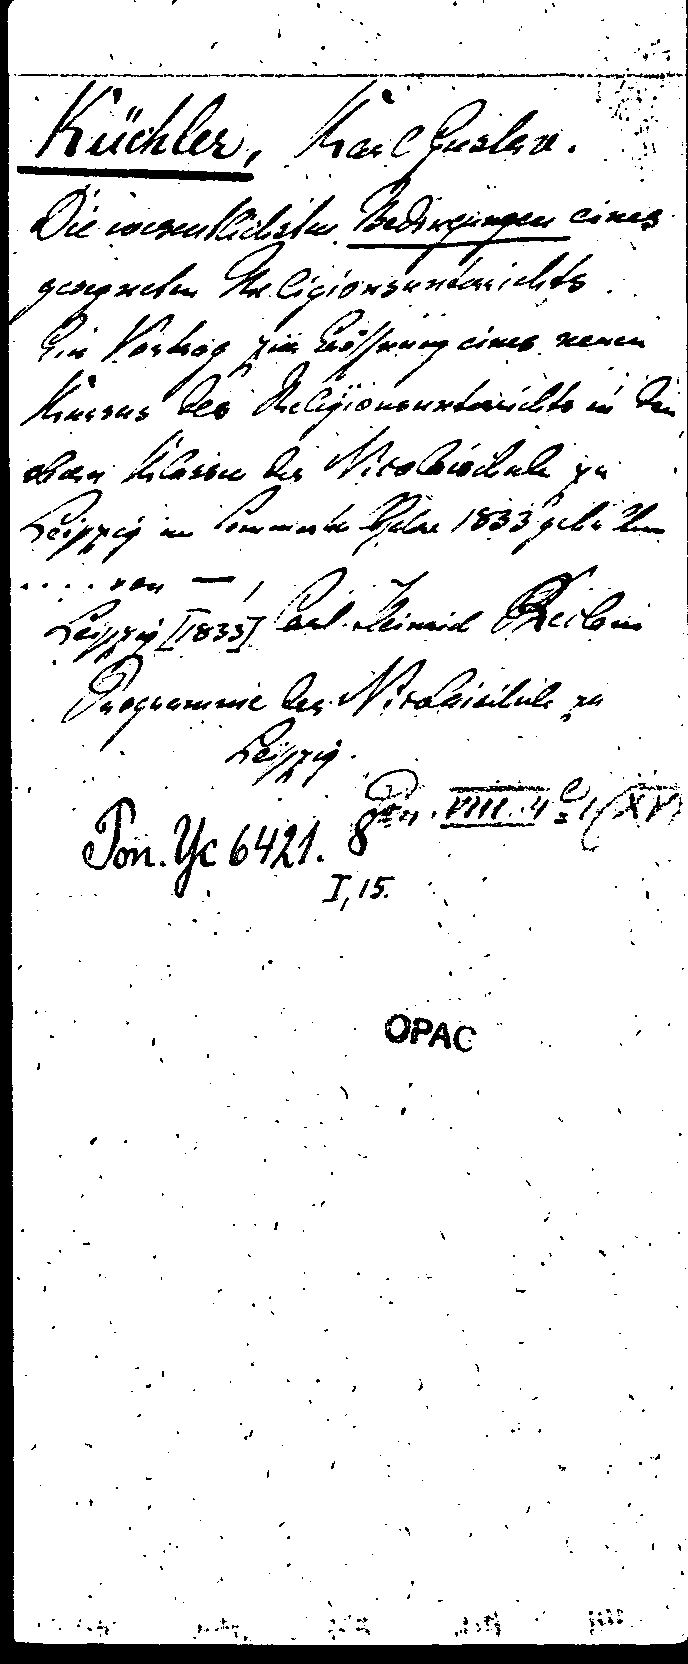 Küchler, Karl Gustav.
Die wesentlichsten Bedingungen eines
gesegneten Religionsunterrichts.
Ein Vortrag zur Eröffnung eines neuen
Kursus des Religionsunterrichts in den
obern Klassen der Nicolaischule zu
Leipzig im Sommerhalbjahre 1833 gehalten
.... von —,
Leipzig [1833] Carl Heinrich
Programme der Nicolaischule zu
Leipzig.
VIII. 4
Pon. Yc 6421. 8
I, 15.
OPAC